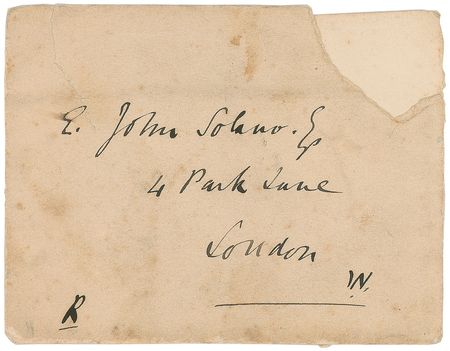 E. John Solano. Esq
4 Park Lane
London
W.
R